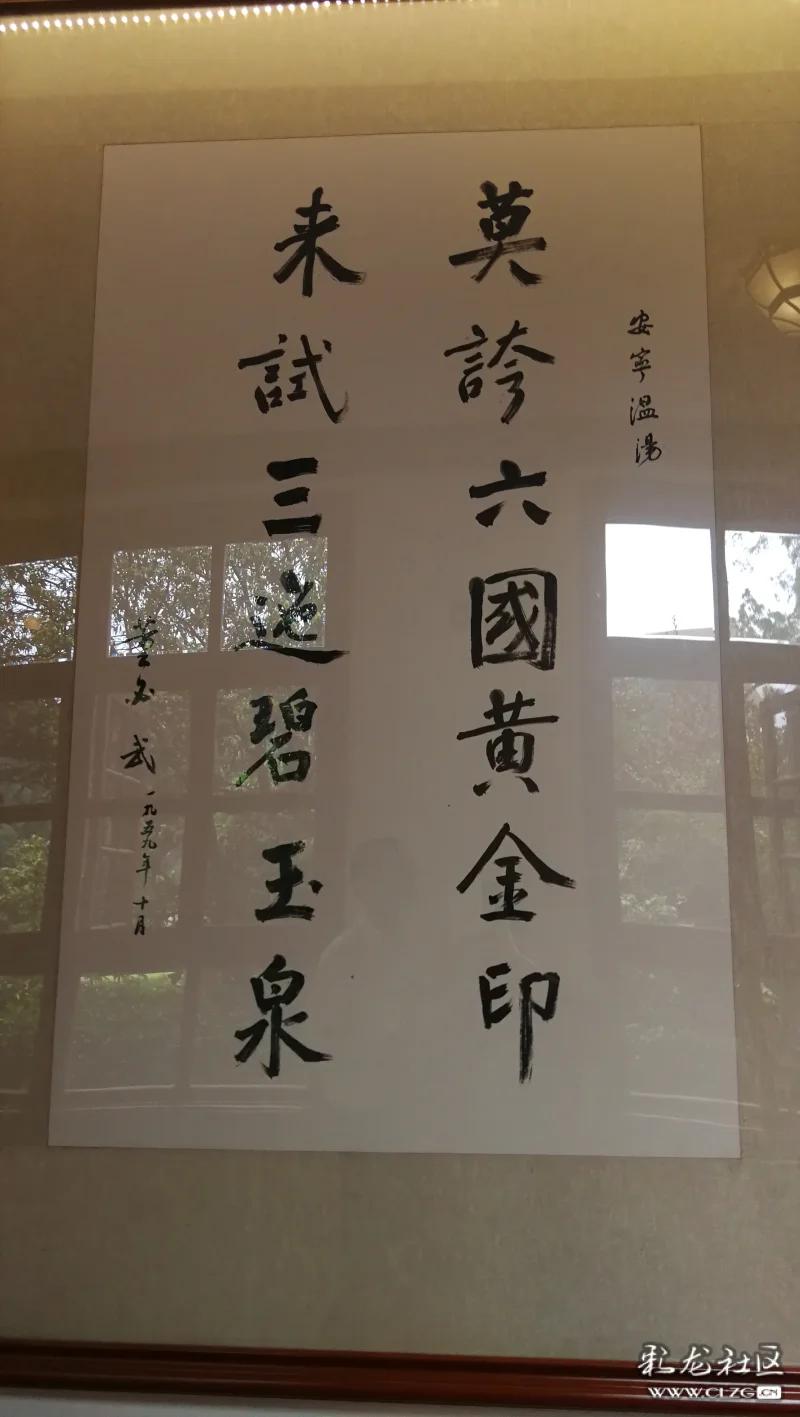 安寧温湯
莫誇六國黃金印
来試三迤碧玉泉
董必武 一九五九年十月
彩龙社区
WWW.CLZG.CN